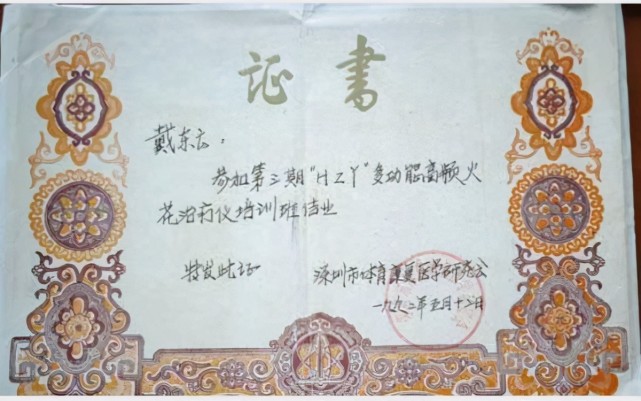 证書
戴东云：
参加第三期“HZY”多功能高频火
花治疗仪培训班结业
特发此证 深圳市体育康复医学研究会
一九九二年五月十二日